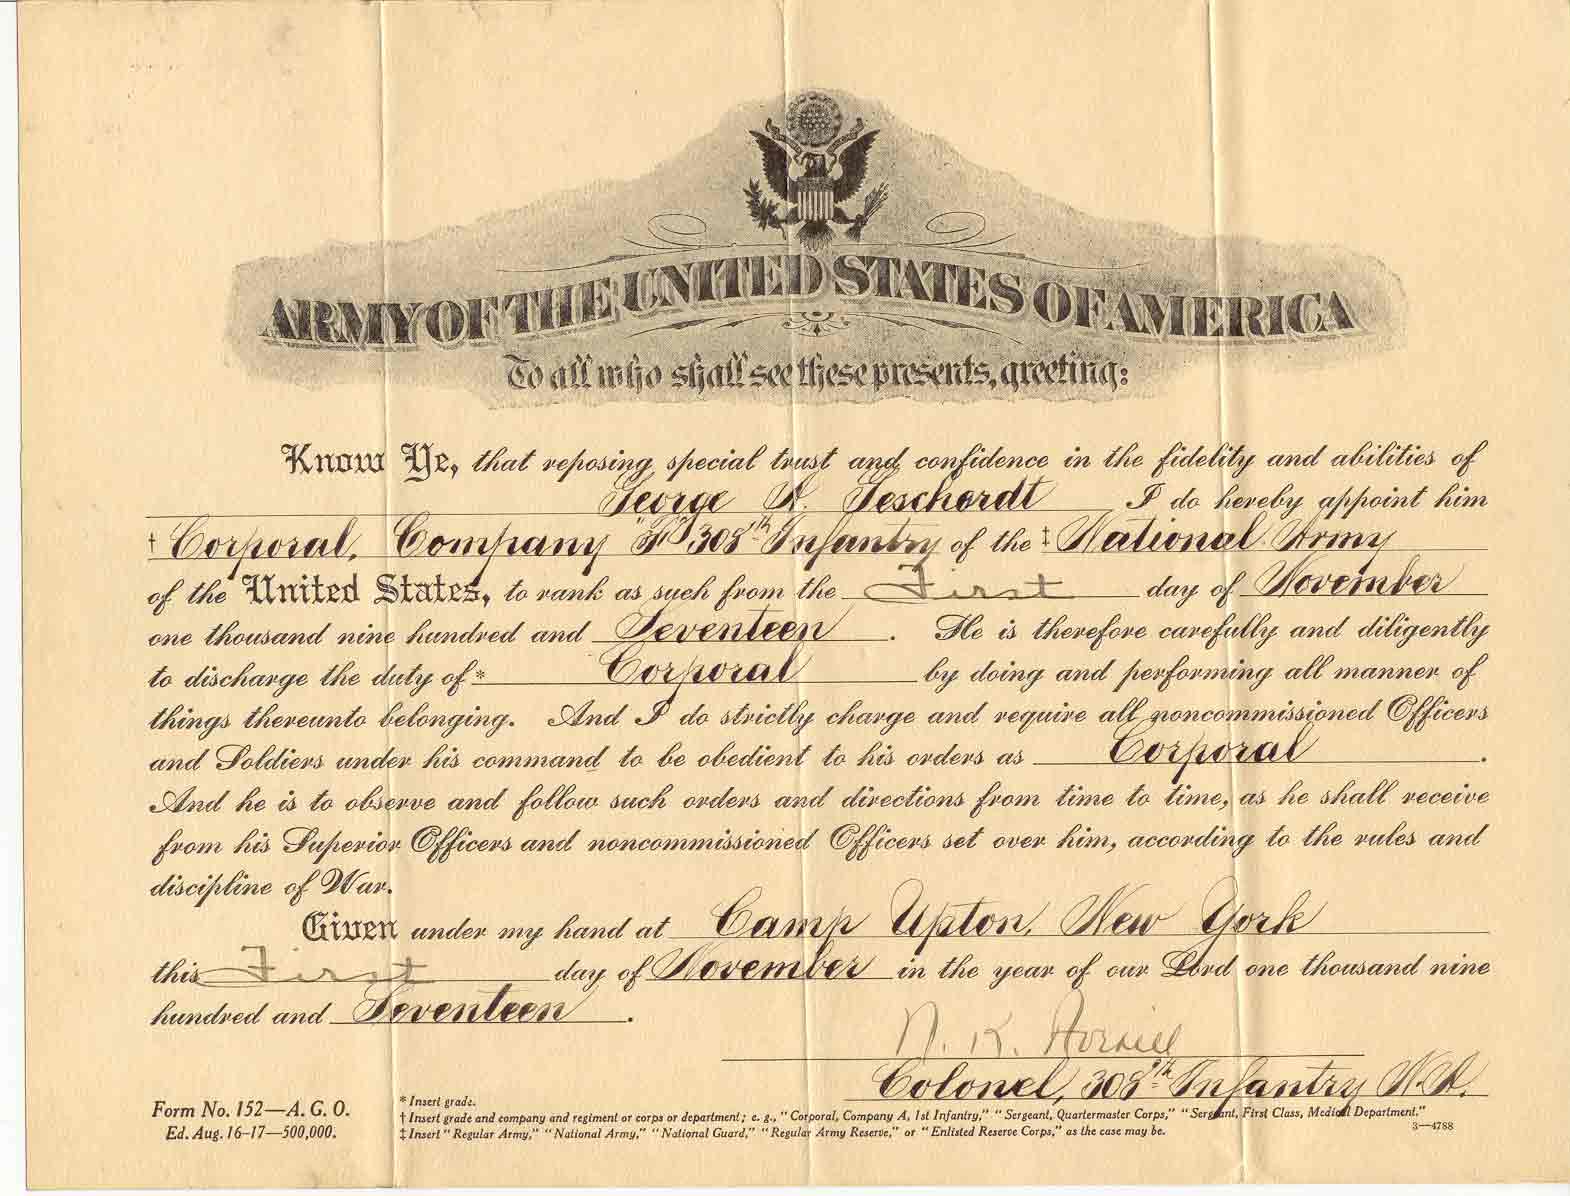 ARMY OF THE UNITED STATES OF AMERICA
To all who shall see these presents, greeting:
Know Ye, that reposing special trust and confidence in the fidelity and abilities of
George A. Teschordt I do hereby appoint him
† Corporal, Company "F" 308th Infantry of the ‡ National Army
of the United States, to rank as such from the First day of November
one thousand nine hundred and Seventeen . He is therefore carefully and diligently
to discharge the duty of * Corporal by doing and performing all manner of
things thereunto belonging. And I do strictly charge and require all noncommissioned Officers
and Soldiers under his command to be obedient to his orders as Corporal .
And he is to observe and follow such orders and directions from time to time, as he shall receive
from his Superior Officers and noncommissioned Officers set over him, according to the rules and
discipline of War.
Given under my hand at Camp Upton, New York
this First day of November in the year of our Lord one thousand nine
hundred and Seventeen .
N. K.
Colonel, 308th Infantry N.A.
Form No. 152—A. G. O.
Ed. Aug. 16-17—500,000.
* Insert grade.
† Insert grade and company and regiment or corps or department; e. g., "Corporal, Company A, 1st Infantry," "Sergeant, Quartermaster Corps," "Sergeant, First Class, Medical Department."
‡ Insert "Regular Army," "National Army," "National Guard," "Regular Army Reserve," or "Enlisted Reserve Corps," as the case may be.
3—4788